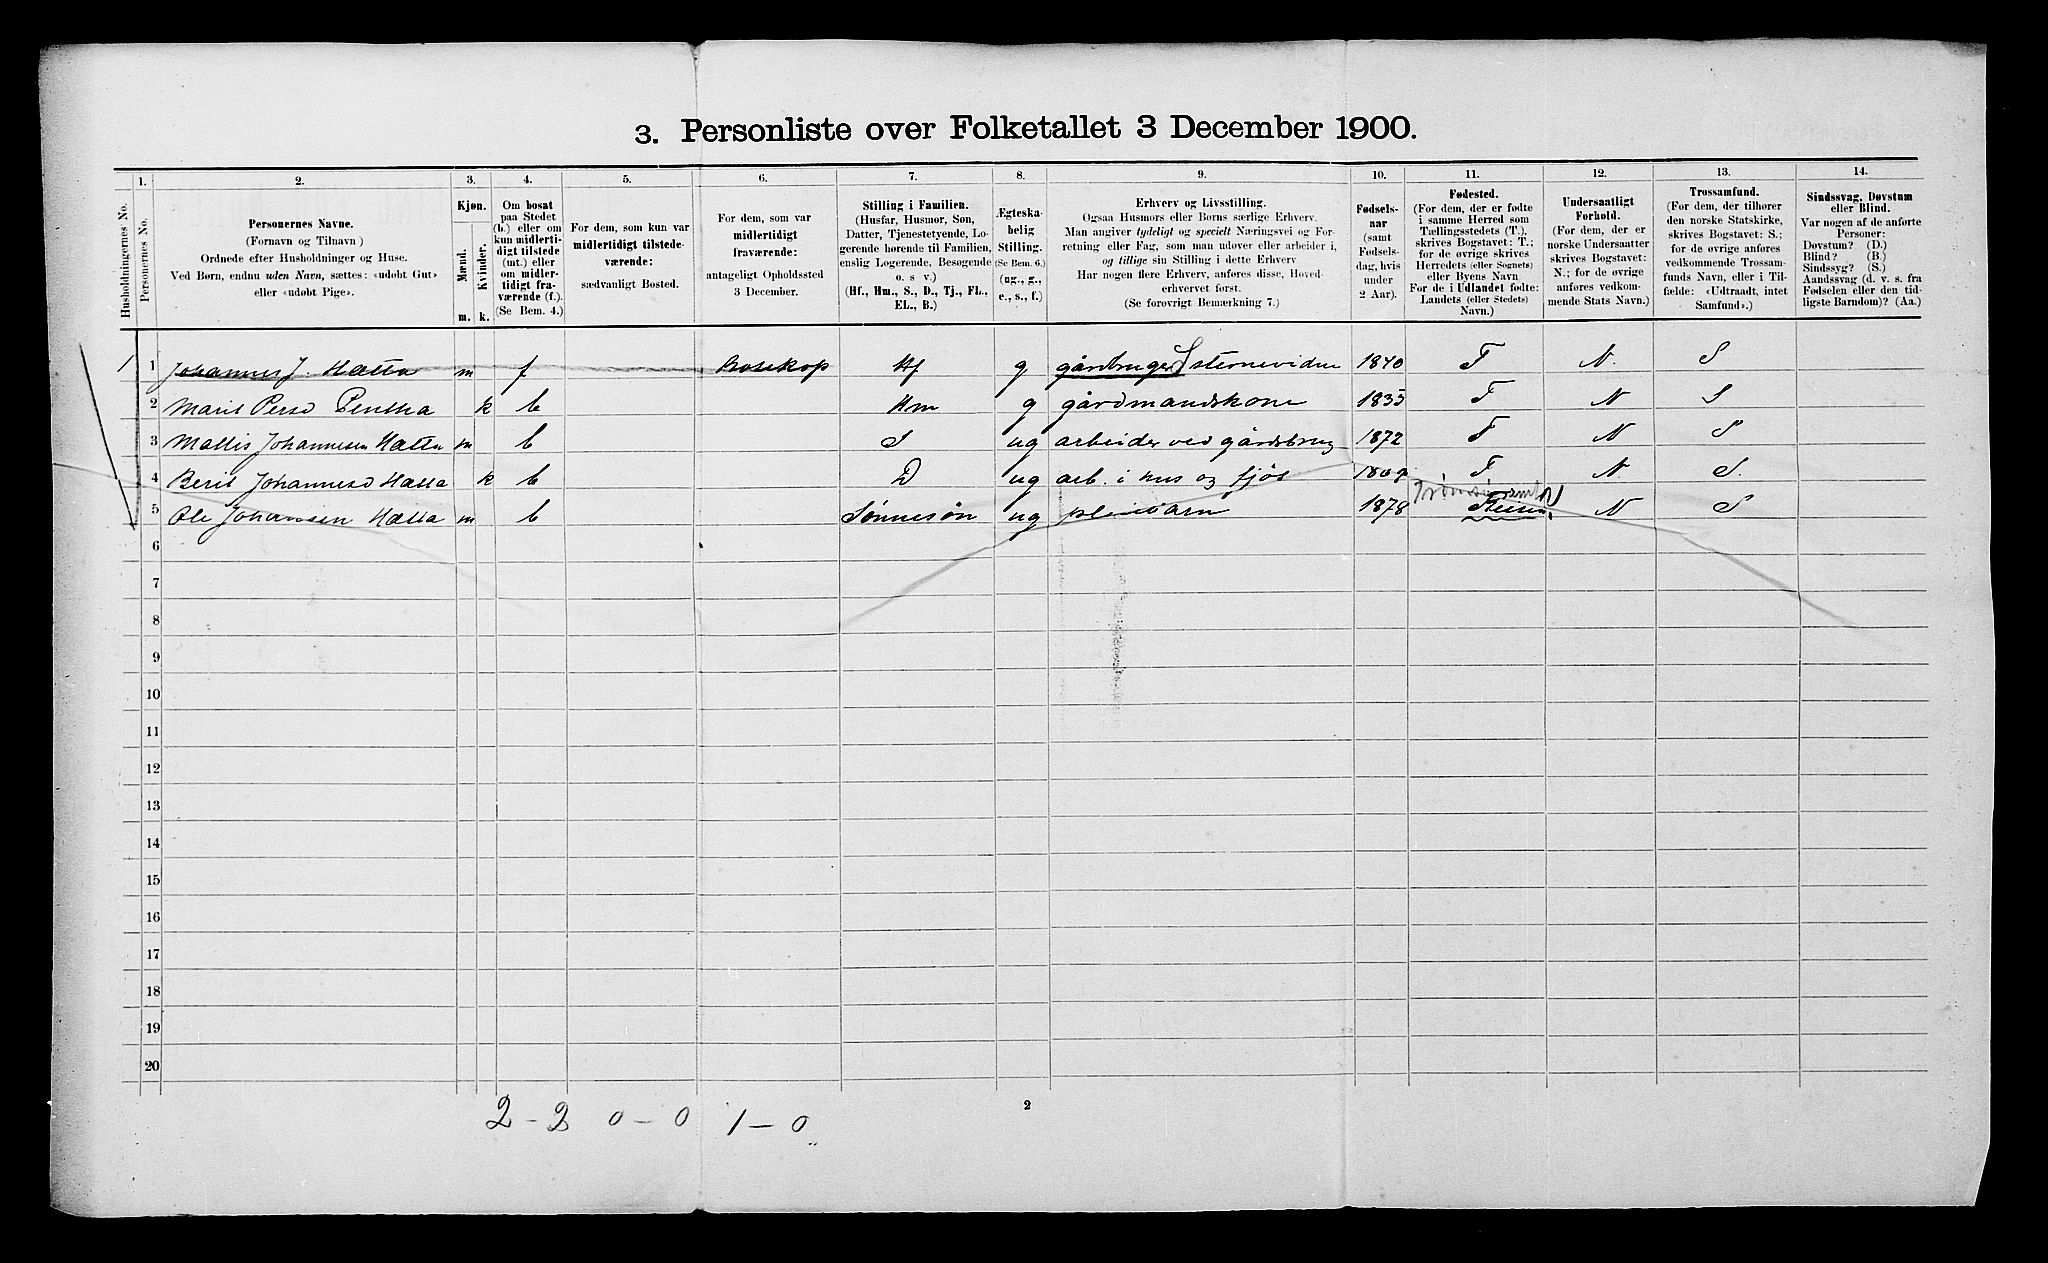 3. Personliste over Folketallet 3 December 1900.
1. 2. 3. 4. 5. 6. 7. 8. 9. 10. 11. 12. 13. 14.
Husholdningernes No.
Personernes No.
Personernes Navne.
(Fornavn og Tilnavn)
Ordnede efter Husholdninger og Huse.
Ved Børn, endnu uden Navn, sættes: «udøbt Gut»
eller «udøbt Pige».
Kjøn.
Mænd.
Kvinder.
m. k.
Om bosat
paa Stedet
(b.) eller om
kun midlerti-
digt tilstede
(mt.) eller
om midler-
tidigt fra-
værende (f.).
(Se Bem. 4.)
For dem, som kun var
midlertidigt tilstede-
værende:
sædvanligt Bosted.
For dem, som var
midlertidigt
fraværende:
antageligt Opholdssted
3 December.
Stilling i Familien.
(Husfar, Husmor, Søn,
Datter, Tjenestetyende, Lo-
gerende hørende til Familien,
enslig Logerende, Besøgende
o. s v.)
(Hf., Hm., S., D., Tj., FL.,
EL., B.)
Ægteska-
belig
Stilling.
(Se Bem. 6.)
(ug., g.,
e., s., f.)
Erhverv og Livsstilling.
Ogsaa Husmors eller Børns særlige Erhverv.
Man angiver tydeligt og specielt Næringsvei og For-
retning eller Fag, som man udøver eller arbeider i,
og tillige sin Stilling i dette Erhverv
Har nogen flere Erhverv, anføres disse, Hoved-
erhvervet først.
(Se forøvrigt Bemærkning 7.)
Fødsels-
aar
(samt
Fødsels-
dag, hvis
under
2 Aar).
Fødested.
(For dem, der er fødte
i samme Herred som
Tællingsstedets (T.),
skrives Bogstavet: T.;
for de øvrige skrives
Herredets (eller Sognets)
eller Byens Navn.
For de i Udlandet fødte:
Landets (eller Stedets)
Navn.)
Undersaatligt
Forhold.
(For dem, der er
norske Undersaatter
skrives Bogstavet:
N.; for de øvrige
anføres vedkom-
mende Stats Navn.)
Trossamfund.
(For dem, der tilhører
den norske Statskirke,
skrives Bogstavet: S.;
for de øvrige anføres
vedkommende Trossam-
funds Navn, eller i Til-
fælde: «Udtraadt, intet
Samfund».)
Sindssvag, Døvstum
eller Blind.
Var nogen af de anførte
Personer:
Døvstum? (D.)
Blind? (B.)
Sindssyg? (S.)
Aandssvag (d. v. s. fra
Fødselen eller den tid-
ligste Barndom)? (Aa.)
1 1 Johannes J. Hætta m f Bosekop Hf g gårdbruger 1840 T N. S
2 Marit Persd Pentha k b Hm g gårdmandskone 1835 T N S
3 Mattis Johannesen Hætta m b S ug arbeider ved gårdsbrug 1872 T N S
4 Berit Johannesd Hætta k b D ug arb. i hus og fjøs T N. S.
Tromsø amt
5 Ole Johansen Hætta m b Sønnesøn ug pleiebarn 1878 N S
6
7
8
9
10
11
12
13
14
15
16
17
18
19
20
2 - 2 0 - 0 1 - 0
2